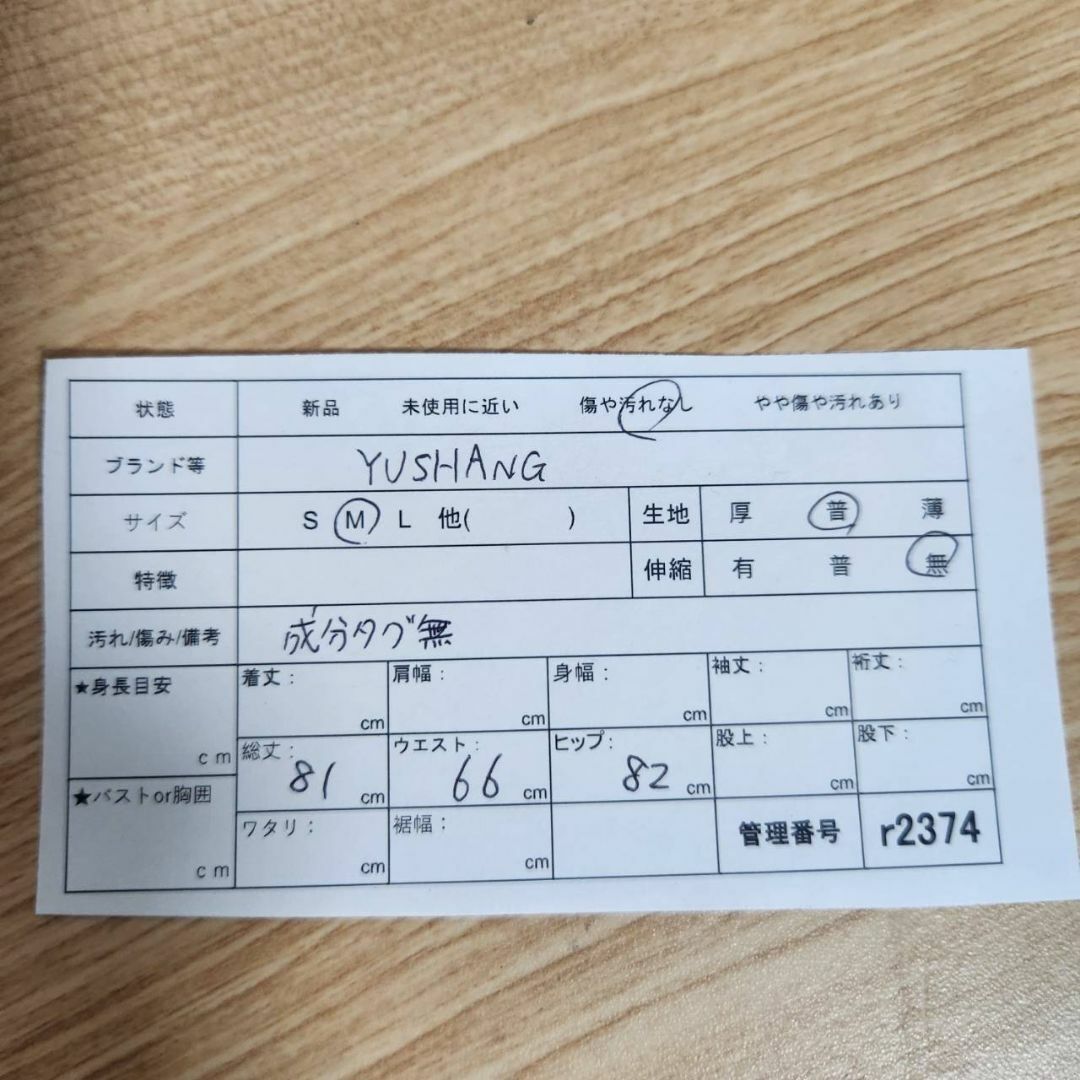 状態 新品 未使用に近い 傷や汚れなし やや傷や汚れあり
ブランド等 YUSHANG
サイズ S M L 他( ) 生地 厚 普 薄
特徴 伸縮 有 普 無
汚れ/傷み/備考 成分タグ無
★身長目安 cm 着丈: cm 肩幅: cm 身幅: cm 袖丈: cm 裄丈: cm
総丈: 81 cm ウエスト: 66 cm ヒップ: 82 cm 股上: cm 股下: cm
★バストor胸囲 cm ワタリ: cm 裾幅: cm 管理番号 r2374